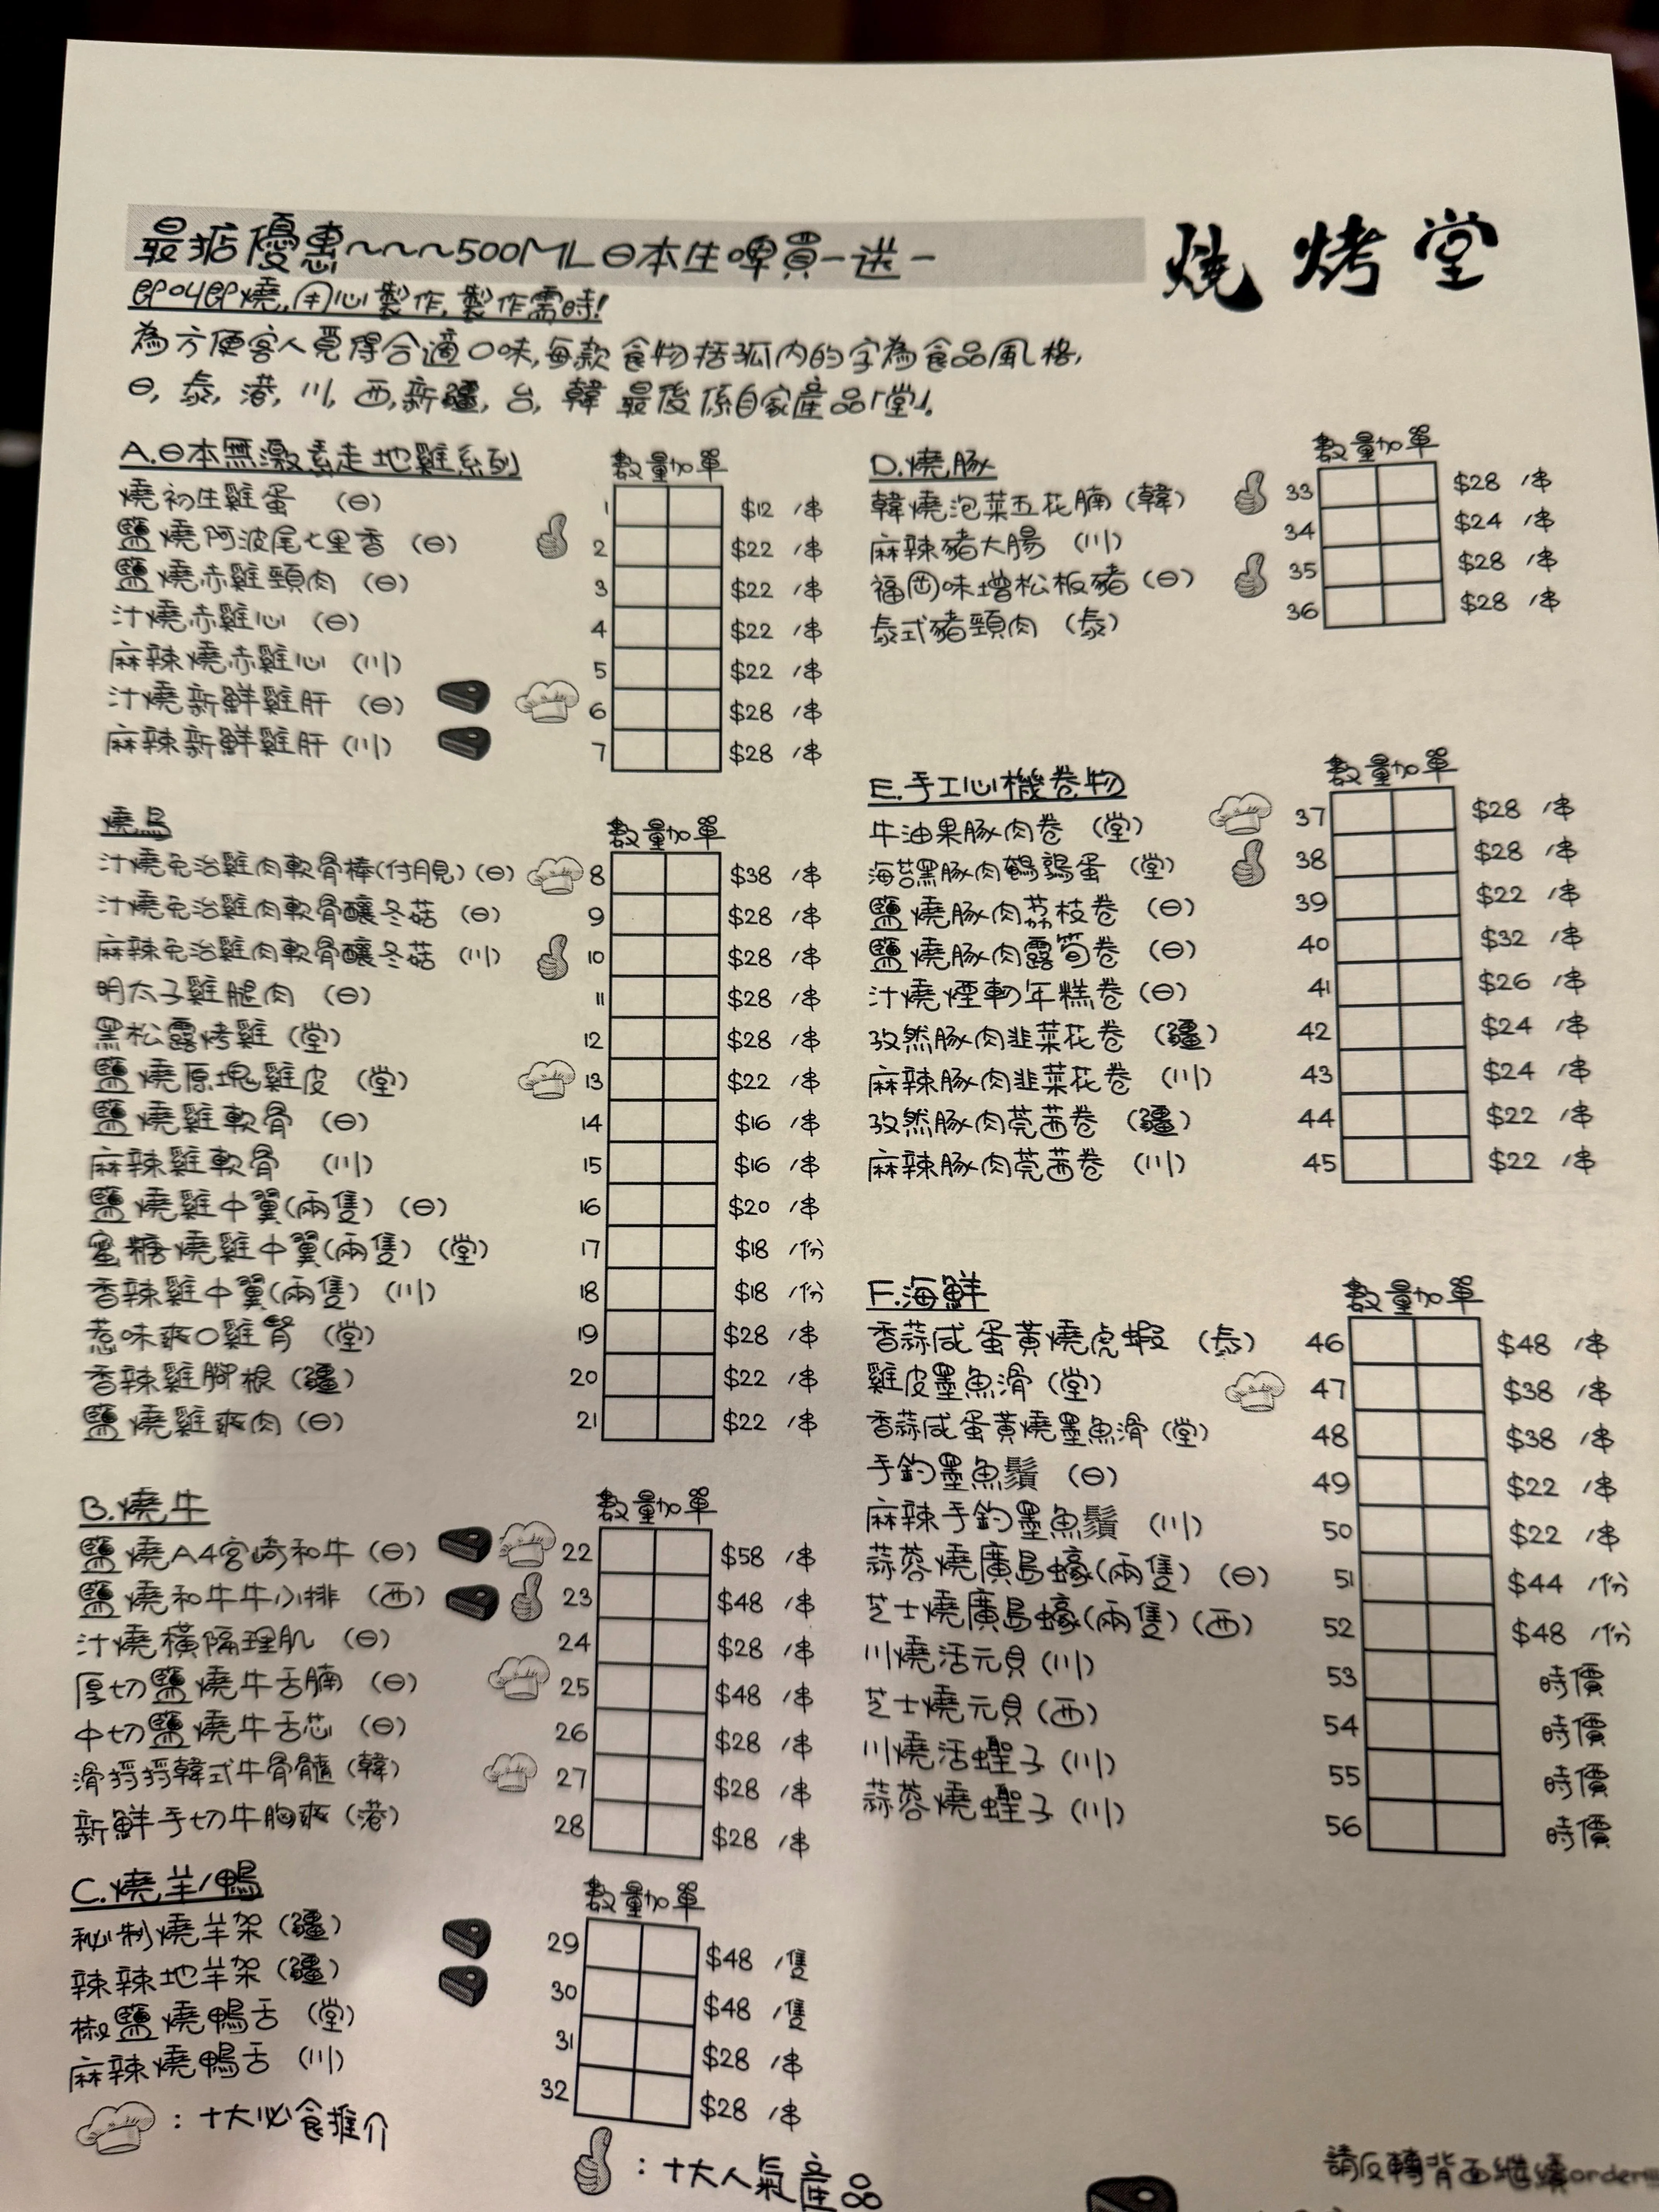 最抵優惠~~~500ML日本生啤買一送一
燒烤堂
即叫即燒,用心製作,製作需時!
為方便客人覓得合適口味,每款食物括孤內的字為食品風格,
日, 泰, 港, 川, 西, 新疆, 台, 韓 最後係自家產品「堂」.
A.日本無激素走地雞系列 數量 加單
燒初生雞蛋 (日) 1 $12 /串
鹽燒阿波尾七里香 (日) 2 $22 /串
鹽燒赤雞頸肉 (日) 3 $22 /串
汁燒赤雞心 (日) 4 $22 /串
麻辣燒赤雞心 (川) 5 $22 /串
汁燒新鮮雞肝 (日) 6 $28 /串
麻辣新鮮雞肝 (川) 7 $28 /串
燒鳥 數量 加單
汁燒免治雞肉軟骨棒(付月見) (日) 8 $38 /串
汁燒免治雞肉軟骨釀冬菇 (日) 9 $28 /串
麻辣免治雞肉軟骨釀冬菇 (川) 10 $28 /串
明太子雞腿肉 (日) 11 $28 /串
黑松露烤雞 (堂) 12 $28 /串
鹽燒原塊雞皮 (堂) 13 $22 /串
鹽燒雞軟骨 (日) 14 $16 /串
麻辣雞軟骨 (川) 15 $16 /串
鹽燒雞中翼(兩隻) (日) 16 $20 /串
蜜糖燒雞中翼(兩隻) (堂) 17 $18 /份
香辣雞中翼(兩隻) (川) 18 $18 /份
惹味爽口雞腎 (堂) 19 $28 /串
香辣雞腳根 (疆) 20 $22 /串
鹽燒雞爽肉 (日) 21 $22 /串
B.燒牛 數量 加單
鹽燒A4宮崎和牛 (日) 22 $58 /串
鹽燒和牛牛小排 (西) 23 $48 /串
汁燒橫隔理肌 (日) 24 $28 /串
厚切鹽燒牛舌腩 (日) 25 $48 /串
中切鹽燒牛舌芯 (日) 26 $28 /串
滑捋捋韓式牛骨髓 (韓) 27 $28 /串
新鮮手切牛胸爽 (港) 28 $28 /串
C.燒羊/鴨 數量 加單
秘制燒羊架 (疆) 29 $48 /隻
辣辣地羊架 (疆) 30 $48 /隻
椒鹽燒鴨舌 (堂) 31 $28 /串
麻辣燒鴨舌 (川) 32 $28 /串
: 十大必食推介
: 十大人氣產品
D.燒豚 數量 加單
韓燒泡菜五花腩 (韓) 33 $28 /串
麻辣豬大腸 (川) 34 $24 /串
福岡味增松板豬 (日) 35 $28 /串
泰式豬頸肉 (泰) 36 $28 /串
E.手工心機卷物 數量 加單
牛油果豚肉卷 (堂) 37 $28 /串
海苔黑豚肉鵪鶉蛋 (堂) 38 $28 /串
鹽燒豚肉荔枝卷 (日) 39 $22 /串
鹽燒豚肉露筍卷 (日) 40 $32 /串
汁燒煙鴨年糕卷 (日) 41 $26 /串
孜然豚肉韭菜花卷 (疆) 42 $24 /串
麻辣豚肉韭菜花卷 (川) 43 $24 /串
孜然豚肉莞茜卷 (疆) 44 $22 /串
麻辣豚肉莞茜卷 (川) 45 $22 /串
F.海鮮 數量 加單
香蒜咸蛋黃燒虎蝦 (泰) 46 $48 /串
雞皮墨魚滑 (堂) 47 $38 /串
香蒜咸蛋黃燒墨魚滑 (堂) 48 $38 /串
手釣墨魚鬚 (日) 49 $22 /串
麻辣手釣墨魚鬚 (川) 50 $22 /串
蒜蓉燒廣島蠔(兩隻) (日) 51 $44 /份
芝士燒廣島蠔(兩隻) (西) 52 $48 /份
川燒活元貝 (川) 53 時價
芝士燒元貝 (西) 54 時價
川燒活蟶子 (川) 55 時價
蒜蓉燒蟶子 (川) 56 時價
請反轉背面繼續order